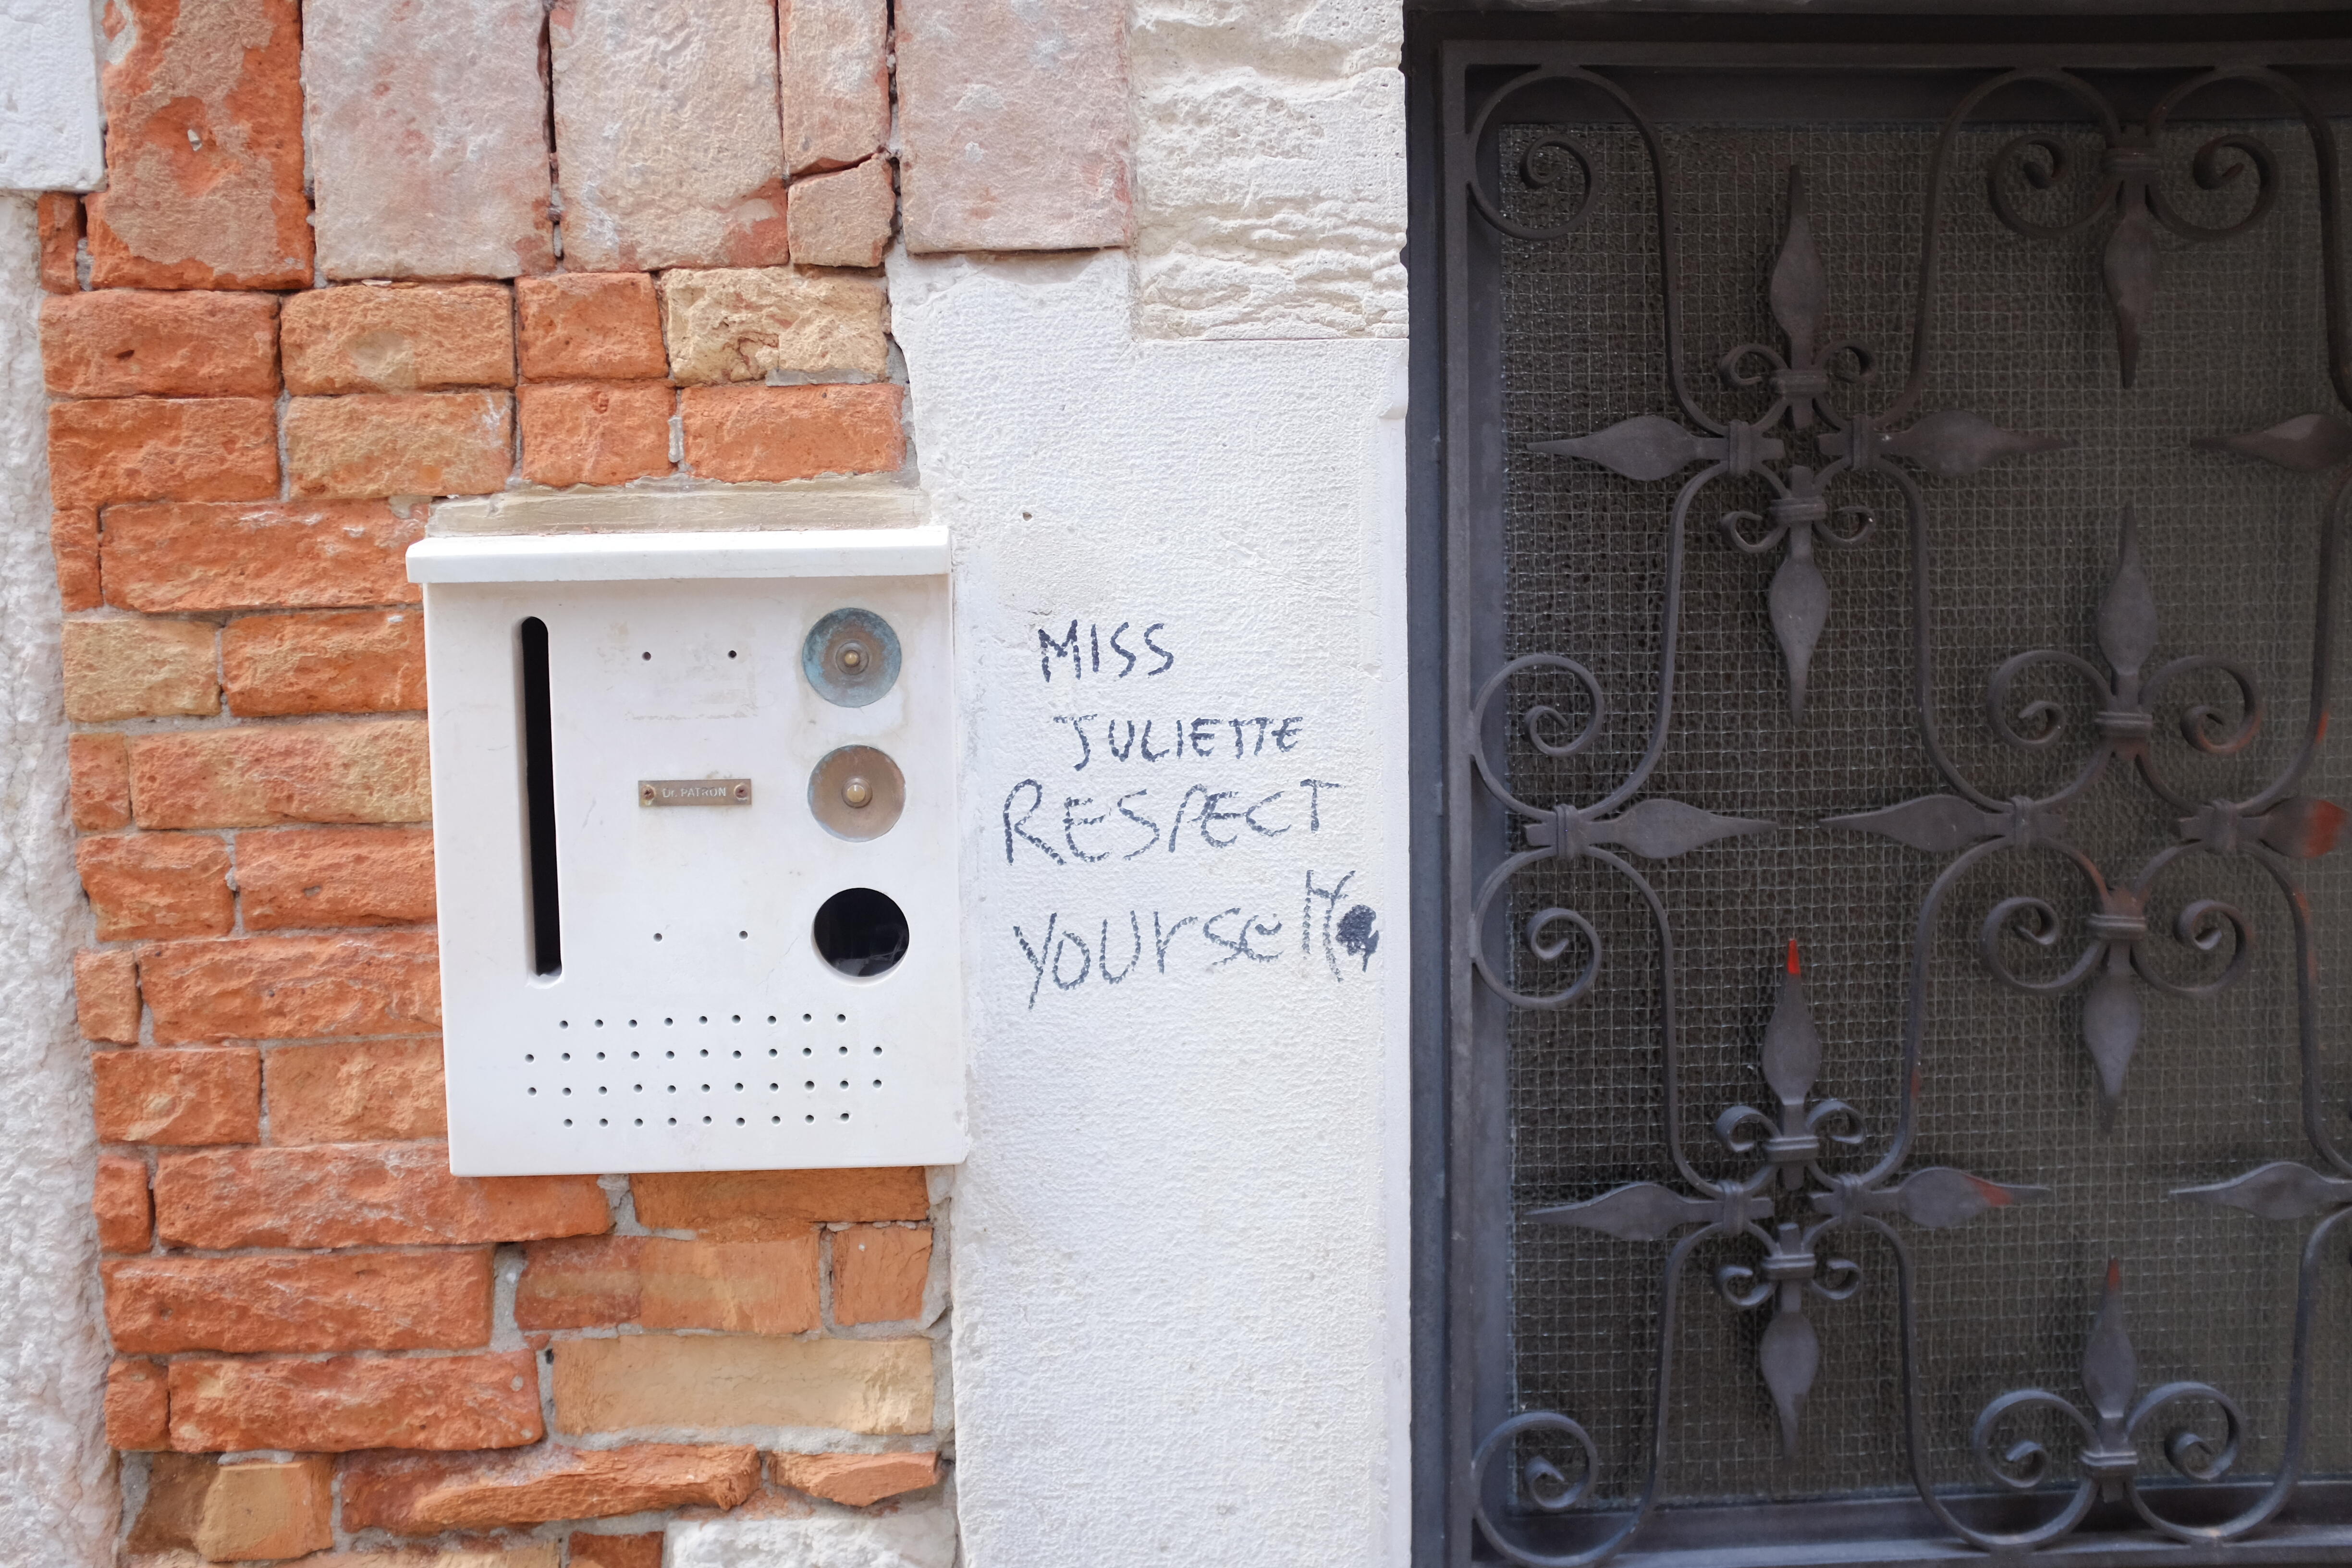 Dr. PATRON
MISS
JULIETTE
RESPECT
yourself